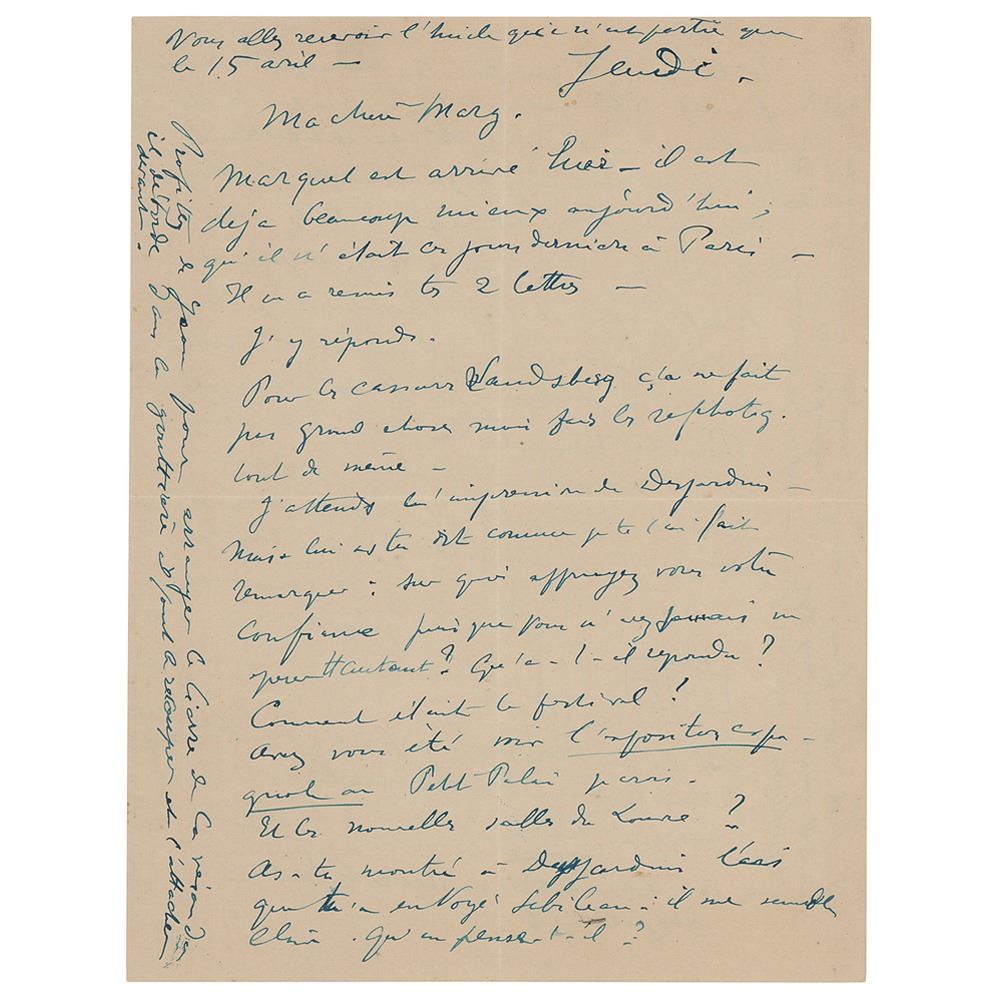 Vous allez recevoir l'huile qui n'est partie que
le 15 avril —
Jeudi.
Ma chère Marg.
Marquet est arrivé hier — il est
déjà beaucoup mieux aujourd'hui,
qu'il n'était ces jours derniers à Paris —
Il m'a remis tes 2 lettres —
J'y réponds.
Pour les cassures Landsberg ça ne fait
pas grand chose mais fais les rephotog.
tout de même —
J'attends l'impression de Desjardins —
Mais lui as tu dit comme je te l'ai fait
remarquer : sur quoi appuyez vous votre
confiance puisque vous n'avez jamais vu
Qu'a-t-il répondu ?
Comment était le festival ?
Avez vous été voir l'exposition espa-
gnole au Petit Palais
Et les nouvelles salles du Louvre ?
As-tu montré à Desjardins
que tu a envoyé Sebileau : il me semble
clair. Qu'en pense-t-il ?
Profitez de Jean pour arranger le lierre de la
il déborde dans la gouttière il faut le recouper et l'attacher
devant.